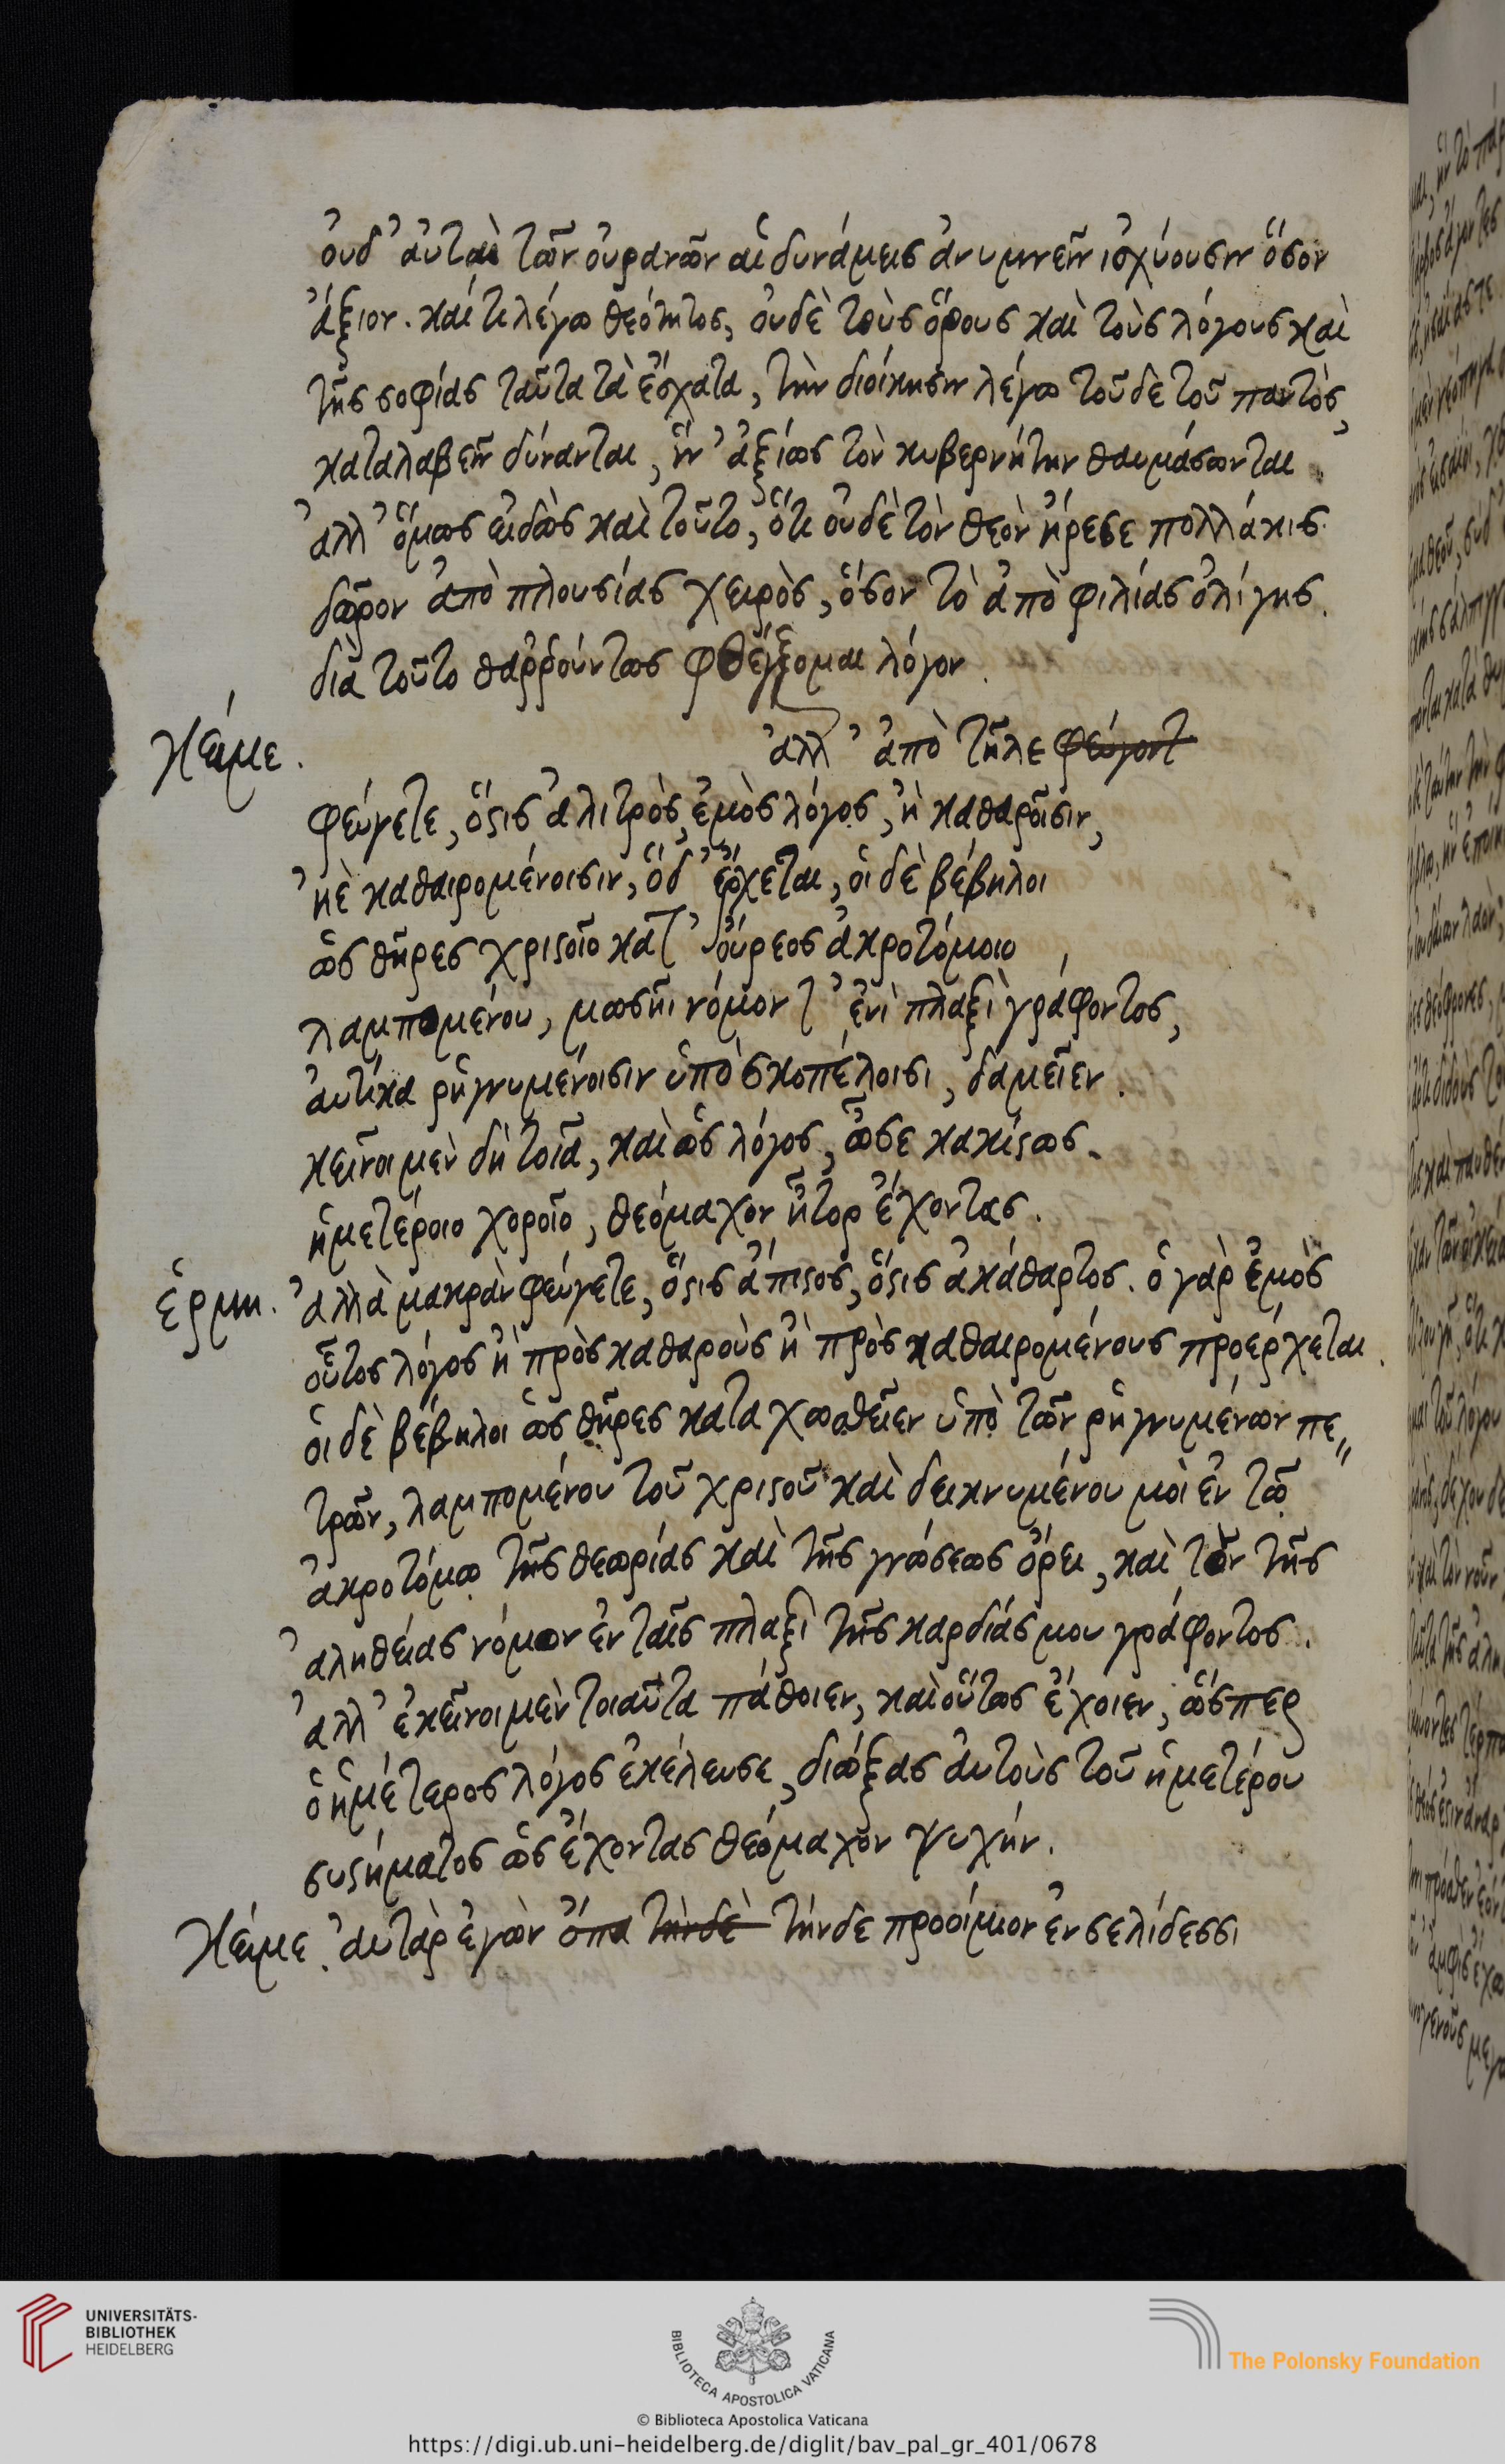 οὐδ' αὐταὶ τῶν οὐρανῶν αἱ δυνάμεις ἀνυμνεῖν ἰσχύουσιν ὅσον
ἄξιον. καί τι λέγω θεότητος, οὐδὲ τοὺς ὅρους καὶ τοὺς λόγους καὶ
τῆς σοφίας ταῦτα τὰ ἔσχατα, τὴν διοίκησιν λέγω τοῦδε τοῦ παντὸς,
καταλαβεῖν δύνανται, ἵν' ἀξίως τὸν κυβερνήτην θαυμάσωνται.
ἀλλ' ὅμως εἰδὼς καὶ τοῦτο, ὅτι οὐδὲ τὸν θεὸν ἤρεσε πολλάκις
δῶρον ἀπὸ πλουσίας χειρὸς, ὅσον τὸ ἀπὸ φιλίας ὀλίγης.
διὰ τοῦτο θαῤῥούντως φθέγξομαι λόγον.
Κείμε.
ἀλλ' ἀπὸ τῆλε φεύγοντ
φεύγετε, ὅστις ἀλιτρὸς, ἐμὸς λόγος, ἢ καθαροῖσιν,
ἠὲ καθαιρομένοισιν, ὅδ' ἔρχεται, οἱ δὲ βέβηλοι
ὡς θῆρες χριστοῖο κατ' οὔρεος ἀκροτόμοιο
λαμπομένου, μωσῆι νόμον τ' ἐνὶ πλαξὶ γράφοντος,
αὐτίκα ῥηγνυμένοισιν ὑπὸ σκοπέλοισι, δαμεῖεν.
κεῖνοι μὲν δὴ τοῖα, καὶ ὡς λόγος, ὦσε κακίστως
ἡμετέροιο χοροῖο, θεόμαχον ἦτορ ἔχοντας.
ἑρμη.
ἀλλὰ μακρὰν φεύγετε, ὅστις ἄπιστος, ὅστις ἀκάθαρτος. ὁ γὰρ ἐμὸς
οὗτος λόγος ἢ πρὸς καθαροὺς ἢ πρὸς καθαιρομένους προέρχεται.
οἱ δὲ βέβηλοι ὡς θῆρες καταχωσθεῖεν ὑπὸ τῶν ῥηγνυμένων πε〃
τρῶν, λαμπομένου τοῦ χριστοῦ καὶ δεικνυμένου μοὶ ἐν τῷ
ἀκροτόμῳ τῆς θεωρίας καὶ τῆς γνώσεως ὄρει, καὶ τὸν τῆς
ἀληθείας νόμον ἐν ταῖς πλαξὶ τῆς καρδίας μου γράφοντος.
ἀλλ' ἐκεῖνοι μὲν τοιαῦτα πάθοιεν, καὶ οὕτως ἔχοιεν, ὥσπερ
ὁ ἡμέτερος λόγος ἐκέλευσε, διώξας αὐτοὺς τοῦ ἡμετέρου
συστήματος ὡς ἔχοντας θεόμαχον ψυχήν.
Κείμε. αὐτὰρ ἐγὼν ὄπα τὴν δὲ τήνδε προοίμιον ἐν σελίδεσσι
UNIVERSITÄTS-
BIBLIOTHEK
HEIDELBERG
BIBLIOTECA APOSTOLICA VATICANA
The Polonsky Foundation
© Biblioteca Apostolica Vaticana
https://digi.ub.uni-heidelberg.de/diglit/bav_pal_gr_401/0678